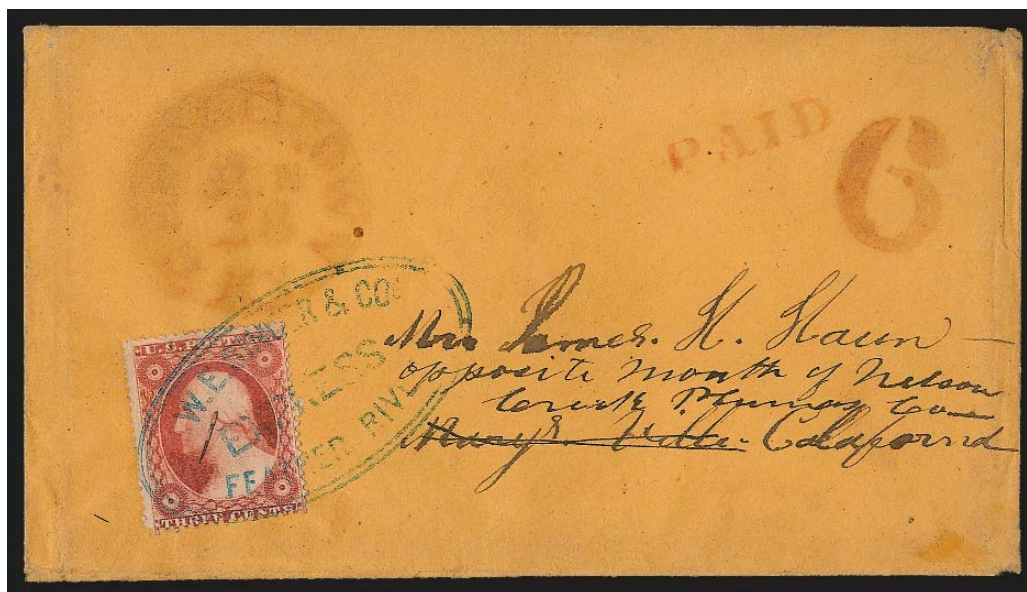 PAID
6
W.E. & CO'S
EXPRESS
FEATHER RIVER
U.S. POSTAGE
THREE CENTS
Mrs James. H. Haun
opposite mouth of Nelson
Creek Plumas Co
Marys Ville California